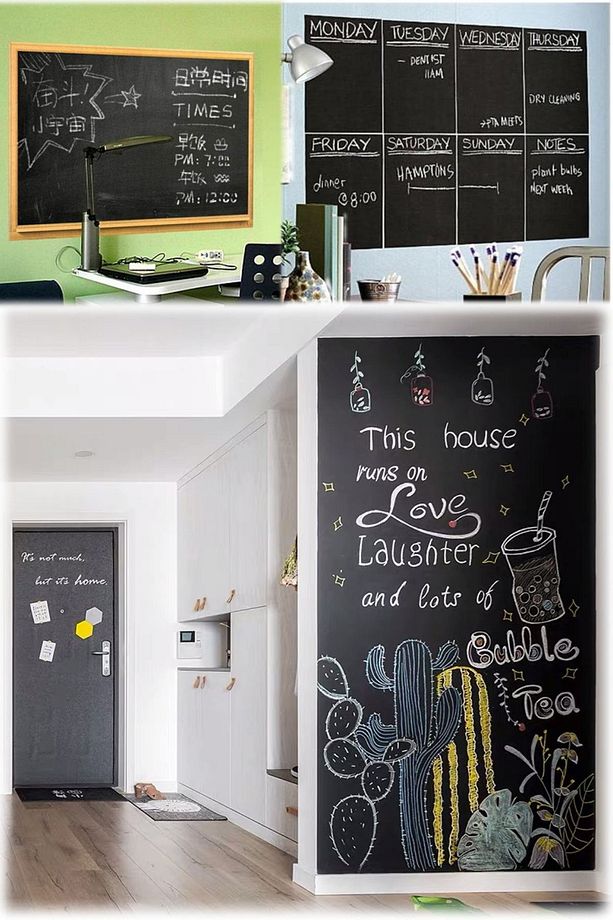 奋斗!
小宇宙
学时间
TIMES
早饭
PM: 7:00
午饭
PM: 12:00
MONDAY
TUESDAY
- DENTIST
11AM
WEDNESDAY
→PTA MEETS
THURSDAY
DRY CLEANING
FRIDAY
dinner
@8:00
SATURDAY
HAMPTONS
SUNDAY
NOTES
plant bulbs
NEXT WEEK
It's not much,
but it's home.
This house
runs on
Love
Laughter
and lots of
Bubble
Tea